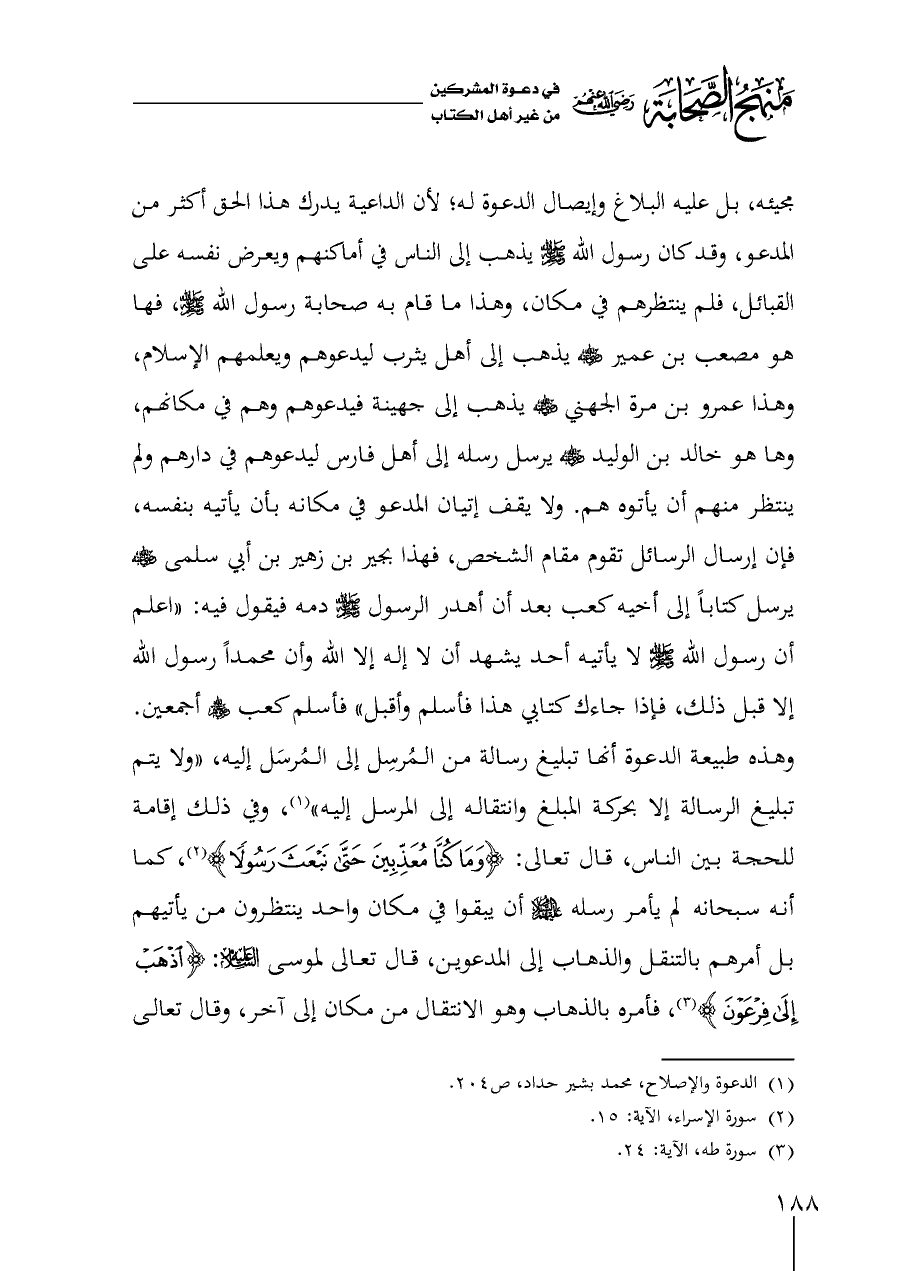 منهج الصحابة رضي الله عنهم
في دعوة المشركين
من غير أهل الكتاب
مجيئه، بل عليه البلاغ وإيصال الدعوة له؛ لأن الداعية يدرك هذا الحق أكثر من
المدعو، وقد كان رسول الله ﷺ يذهب إلى الناس في أماكنهم ويعرض نفسه على
القبائل، فلم ينتظرهم في مكان، وهذا ما قام به صحابة رسول الله ﷺ، فها
هو مصعب بن عمير رضي الله عنه يذهب إلى أهل يثرب ليدعوهم ويعلمهم الإسلام،
وهذا عمرو بن مرة الجهني رضي الله عنه يذهب إلى جهينة فيدعوهم وهم في مكانهم،
وها هو خالد بن الوليد رضي الله عنه يرسل رسله إلى أهل فارس ليدعوهم في دارهم ولم
ينتظر منهم أن يأتوه هم. ولا يقف إتيان المدعو في مكانه بأن يأتيه بنفسه،
فإن إرسال الرسائل تقوم مقام الشخص، فهذا بجير بن زهير بن أبي سلمى رضي الله عنه
يرسل كتاباً إلى أخيه كعب بعد أن أهدر الرسول ﷺ دمه فيقول فيه: «اعلم
أن رسول الله ﷺ لا يأتيه أحد يشهد أن لا إله إلا الله وأن محمداً رسول الله
إلا قبل ذلك، فإذا جاءك كتابي هذا فأسلم وأقبل» فأسلم كعب رضي الله عنه أجمعين.
وهذه طبيعة الدعوة أنها تبليغ رسالة من المُرسِل إلى المُرسَل إليه، «ولا يتم
تبليغ الرسالة إلا بحركة المبلغ وانتقاله إلى المرسل إليه»(١)، وفي ذلك إقامة
للحجة بين الناس، قال تعالى: ﴿وَمَا كُنَّا مُعَذِّبِينَ حَتَّىٰ نَبْعَثَ رَسُولًا﴾(٢)، كما
أنه سبحانه لم يأمر رسله عليهم السلام أن يبقوا في مكان واحد ينتظرون من يأتيهم
بل أمرهم بالتنقل والذهاب إلى المدعوين، قال تعالى لموسى عليه السلام: ﴿ٱذْهَبْ
إِلَىٰ فِرْعَوْنَ﴾(٣)، فأمره بالذهاب وهو الانتقال من مكان إلى آخر، وقال تعالى
(١) الدعوة والإصلاح، محمد بشير حداد، ص٢٠٤.
(٢) سورة الإسراء، الآية: ١٥.
(٣) سورة طه، الآية: ٢٤.
١٨٨